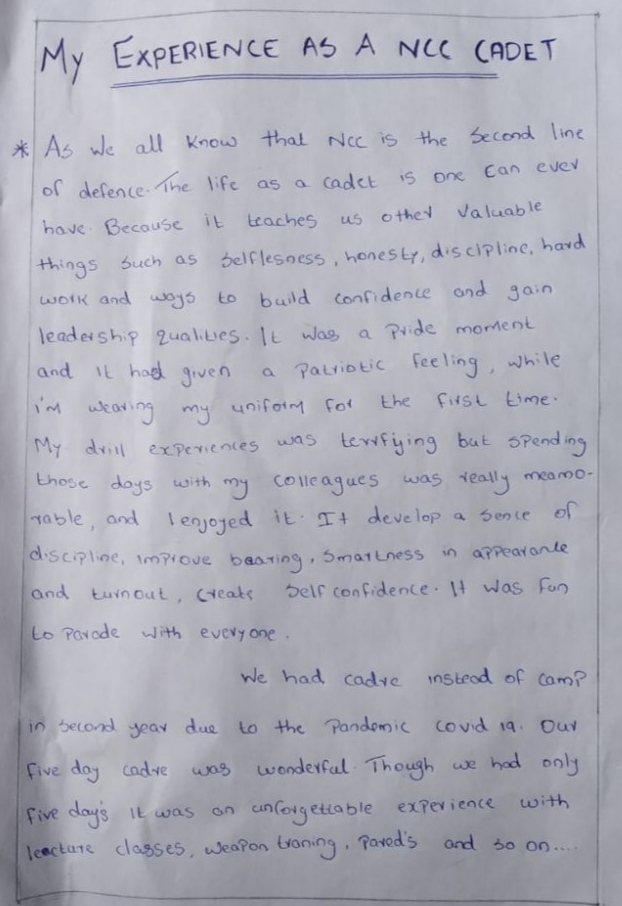 My EXPERIENCE AS A NCC CADET
* As we all know that NCC is the second line
of defence. The life as a cadet is one can ever
have. Because it teaches us other valuable
things such as selflesness, honesty, discipline, hard
work and ways to build confidence and gain
leadership qualities. It was a pride moment
and it had given a patriotic feeling, while
i'm wearing my uniform for the first time.
My drill experiences was terrfiying but spending
those days with my colleagues was really meamo-
rable, and I enjoyed it. It develop a sence of
discipline, improve bearing, smartness in appearance
and turnout, create self confidence. It was fun
to parade with everyone.
We had cadre instead of camp
in second year due to the Pandemic covid 19. Our
five day cadre was wonderful. Though we had only
five day's it was an unforgettable experience with
leacture classes, weapon traning, pared's and so on....